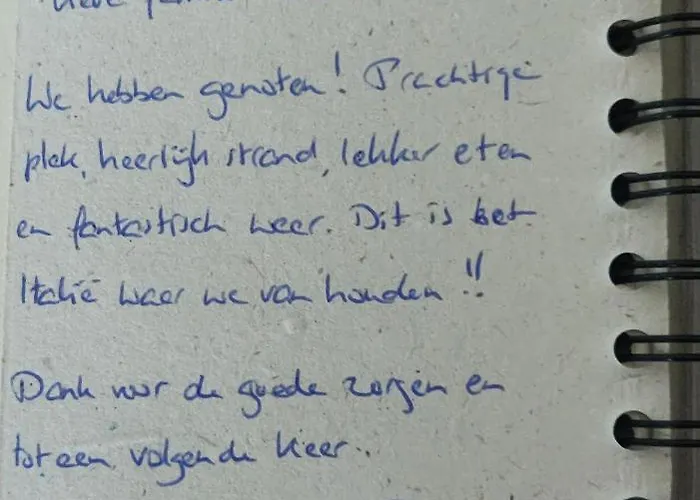 We hebben genoten! Prachtige
plek, heerlijk strand, lekker eten
en fantastisch weer. Dit is het
Italië waar we van houden!!
Dank voor de goede zorgen en
tot een volgende keer..